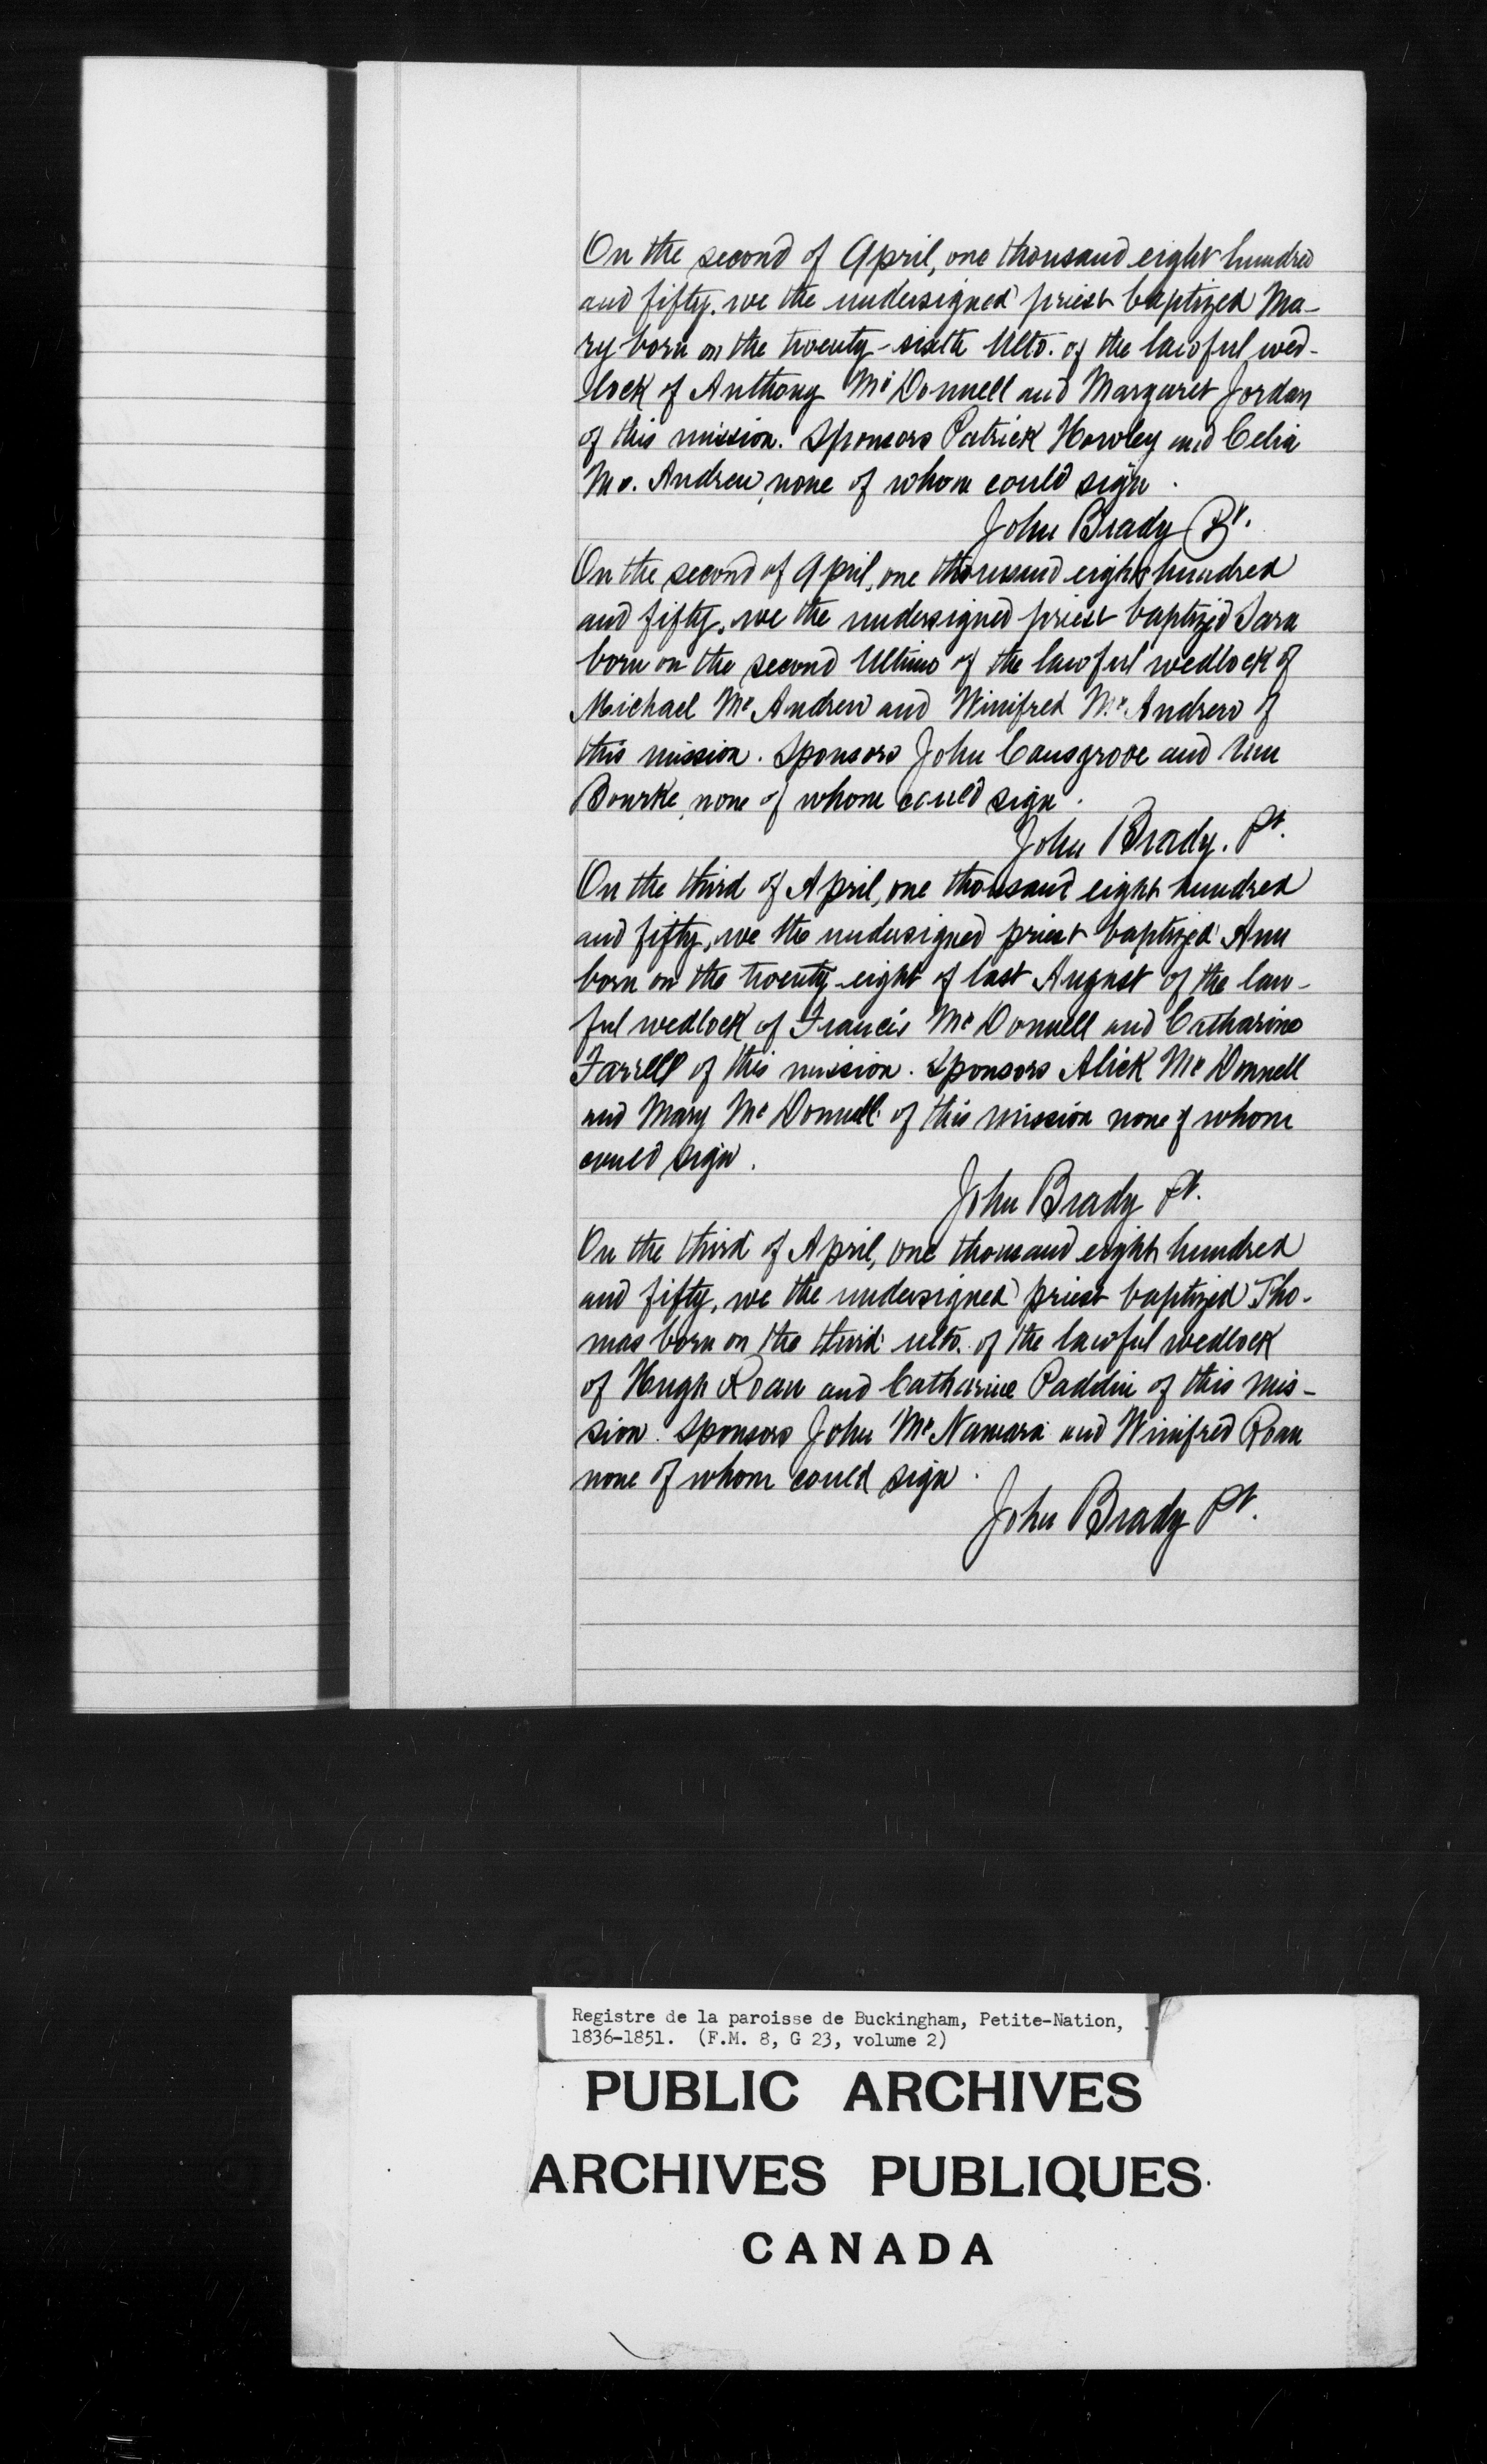 On the second of April, one thousand eight hundred
and fifty, we the undersigned priest baptized Ma-
ry born on the twenty-sixth Ulto. of the lawful wed-
lock of Anthony Mc Donnell and Margaret Jordan
of this mission. Sponsors Patrick Howley and Celia
Mc. Andrew, none of whom could sign.
John Brady Pt.
On the second of April, one thousand eight hundred
and fifty, we the undersigned priest baptized Sara
born on the second Ultimo of the lawful wedlock of
Michael Mc Andrew and Winifred Mc Andrew of
this mission. Sponsors John Cousgrove and
Bourke, none of whom could sign.
John Brady. Pt.
On the third of April, one thousand eight hundred
and fifty, we the undersigned priest baptized Ann
born on the twenty-eight of last August of the law-
ful wedlock of Francis Mc Donnell and Catharine
Farrell of this mission. Sponsors Alick Mc Donnell
and Mary Mc Donnell of this mission none of whom
could sign.
John Brady Pt.
On the third of April, one thousand eight hundred
and fifty, we the undersigned priest baptized Tho-
mas born on the third ulto. of the lawful wedlock
of Hugh Roan and Catharine Paddin of this mis-
sion. Sponsors John Mc Namara and Winifred Roan
none of whom could sign.
John Brady Pt.
Registre de la paroisse de Buckingham, Petite-Nation,
1836-1851. (F.M. 8, G 23, volume 2)
PUBLIC ARCHIVES
ARCHIVES PUBLIQUES
CANADA